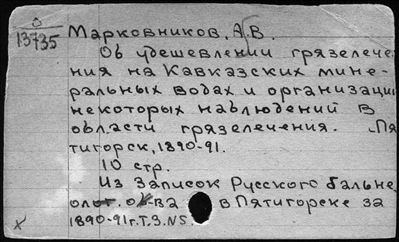 О
13735
Марковников, А.В.
Об удешевлении грязелече
ния на Кавказских мине-
ральных водах и организаци
некоторых наблюдений в
области грязелечения. Пя
тигорск, 1890-91.
10 стр.
Из Записок Русского бальне
олог. о-ва в Пятигорске за
1890-91 г. Т.3. N5.